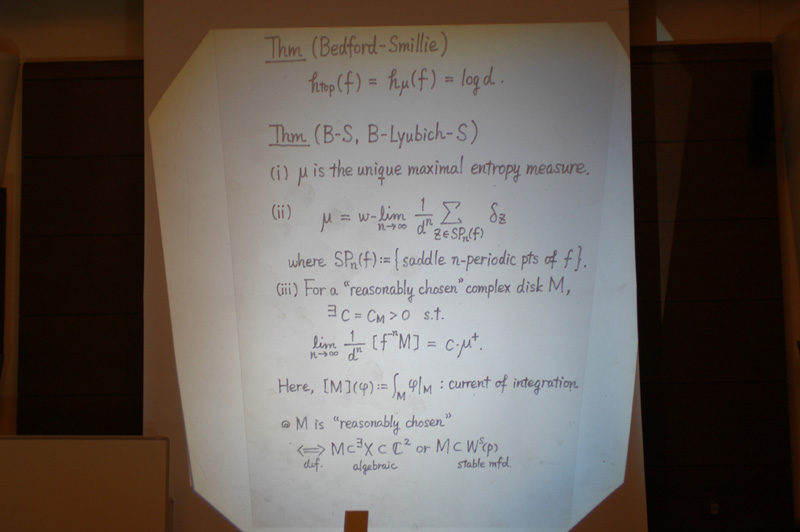 Thm (Bedford-Smillie)
h_top(f) = h_μ(f) = log d.
Thm (B-S, B-Lyubich-S)
(i) μ is the unique maximal entropy measure.
(ii) μ = w-lim_{n→∞} 1/dⁿ Σ_{z∈SPₙ(f)} δ_z
where SPₙ(f) := {saddle n-periodic pts of f}.
(iii) For a "reasonably chosen" complex disk M,
∃ C = C_M > 0 s.t.
lim_{n→∞} 1/dⁿ [f⁻ⁿM] = c·μ⁺.
Here, [M](φ) := ∫_M φ|_M : current of integration
@ M is "reasonably chosen"
⟺ M ⊂ ∃X ⊂ ℂ² or M ⊂ Wˢ(p)
def. algebraic stable mfd.